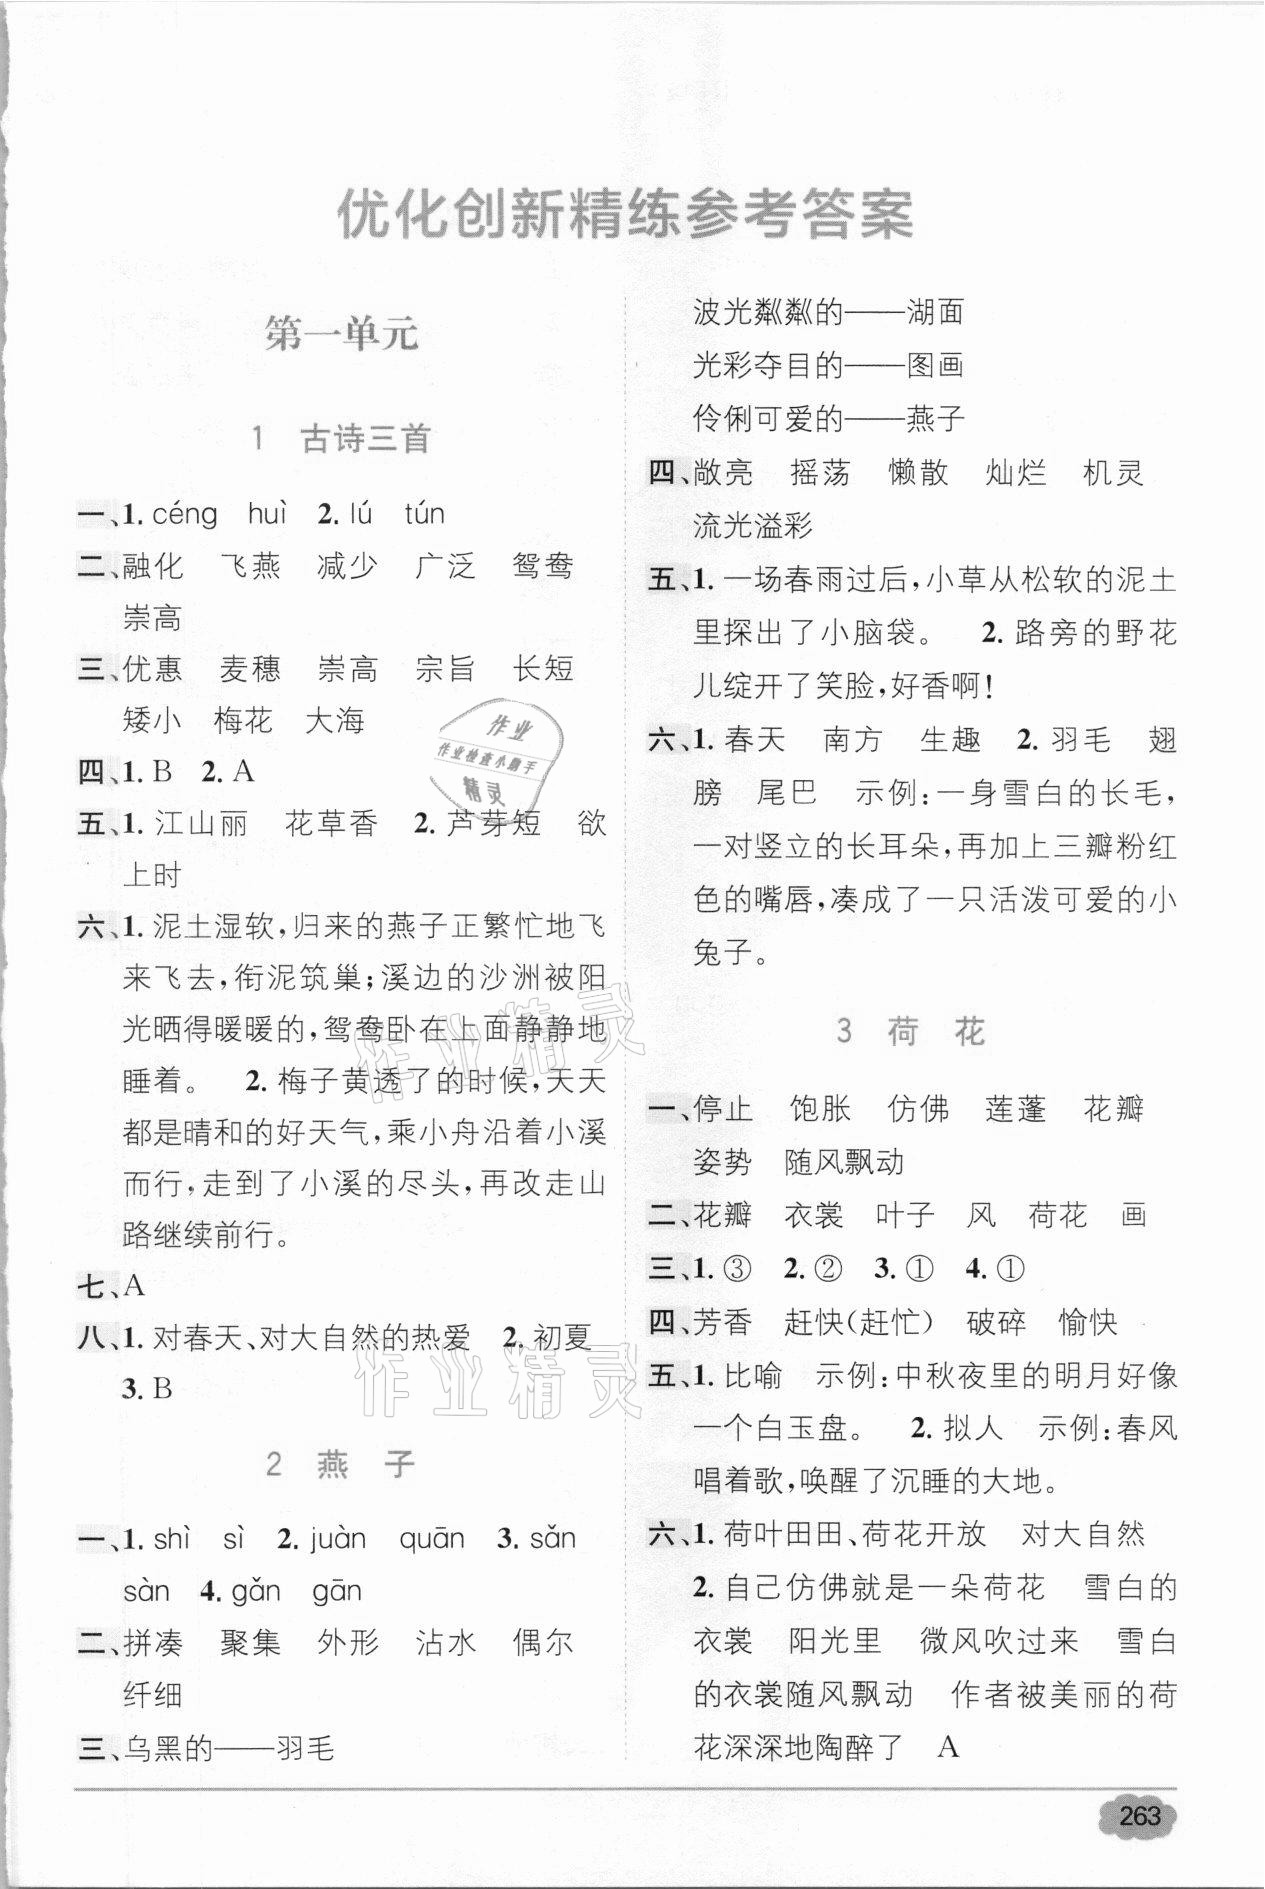 优化创新精练参考答案
第一单元
1 古诗三首
一、1. céng huì 2. lú tún
二、融化 飞燕 减少 广泛 鸳鸯
崇高
三、优惠 麦穗 崇高 宗旨 长短
矮小 梅花 大海
四、1. B 2. A
五、1. 江山丽 花草香 2. 芦芽短 欲
上时
六、1. 泥土湿软,归来的燕子正繁忙地飞
来飞去,衔泥筑巢;溪边的沙洲被阳
光晒得暖暖的,鸳鸯卧在上面静静地
睡着。 2. 梅子黄透了的时候,天天
都是晴和的好天气,乘小舟沿着小溪
而行,走到了小溪的尽头,再改走山
路继续前行。
七、A
八、1. 对春天、对大自然的热爱 2. 初夏
3. B
2 燕 子
一、1. shì sì 2. juàn quān 3. sǎn
sàn 4. gǎn gān
二、拼凑 聚集 外形 沾水 偶尔
纤细
三、乌黑的——羽毛
波光粼粼的——湖面
光彩夺目的——图画
伶俐可爱的——燕子
四、敞亮 摇荡 懒散 灿烂 机灵
流光溢彩
五、1. 一场春雨过后,小草从松软的泥土
里探出了小脑袋。 2. 路旁的野花
儿绽开了笑脸,好香啊!
六、1. 春天 南方 生趣 2. 羽毛 翅
膀 尾巴 示例:一身雪白的长毛,
一对竖立的长耳朵,再加上三瓣粉红
色的嘴唇,凑成了一只活泼可爱的小
兔子。
3 荷 花
一、停止 饱胀 仿佛 莲蓬 花瓣
姿势 随风飘动
二、花瓣 衣裳 叶子 风 荷花 画
三、1. ③ 2. ② 3. ① 4. ①
四、芳香 赶快(赶忙) 破碎 愉快
五、1. 比喻 示例:中秋夜里的明月好像
一个白玉盘。 2. 拟人 示例:春风
唱着歌,唤醒了沉睡的大地。
六、1. 荷叶田田、荷花开放 对大自然
2. 自己仿佛就是一朵荷花 雪白的
衣裳 阳光里 微风吹过来 雪白
的衣裳随风飘动 作者被美丽的荷
花深深地陶醉了 A
263
作业
作业检查小助手
精灵
作业精灵
作业精灵